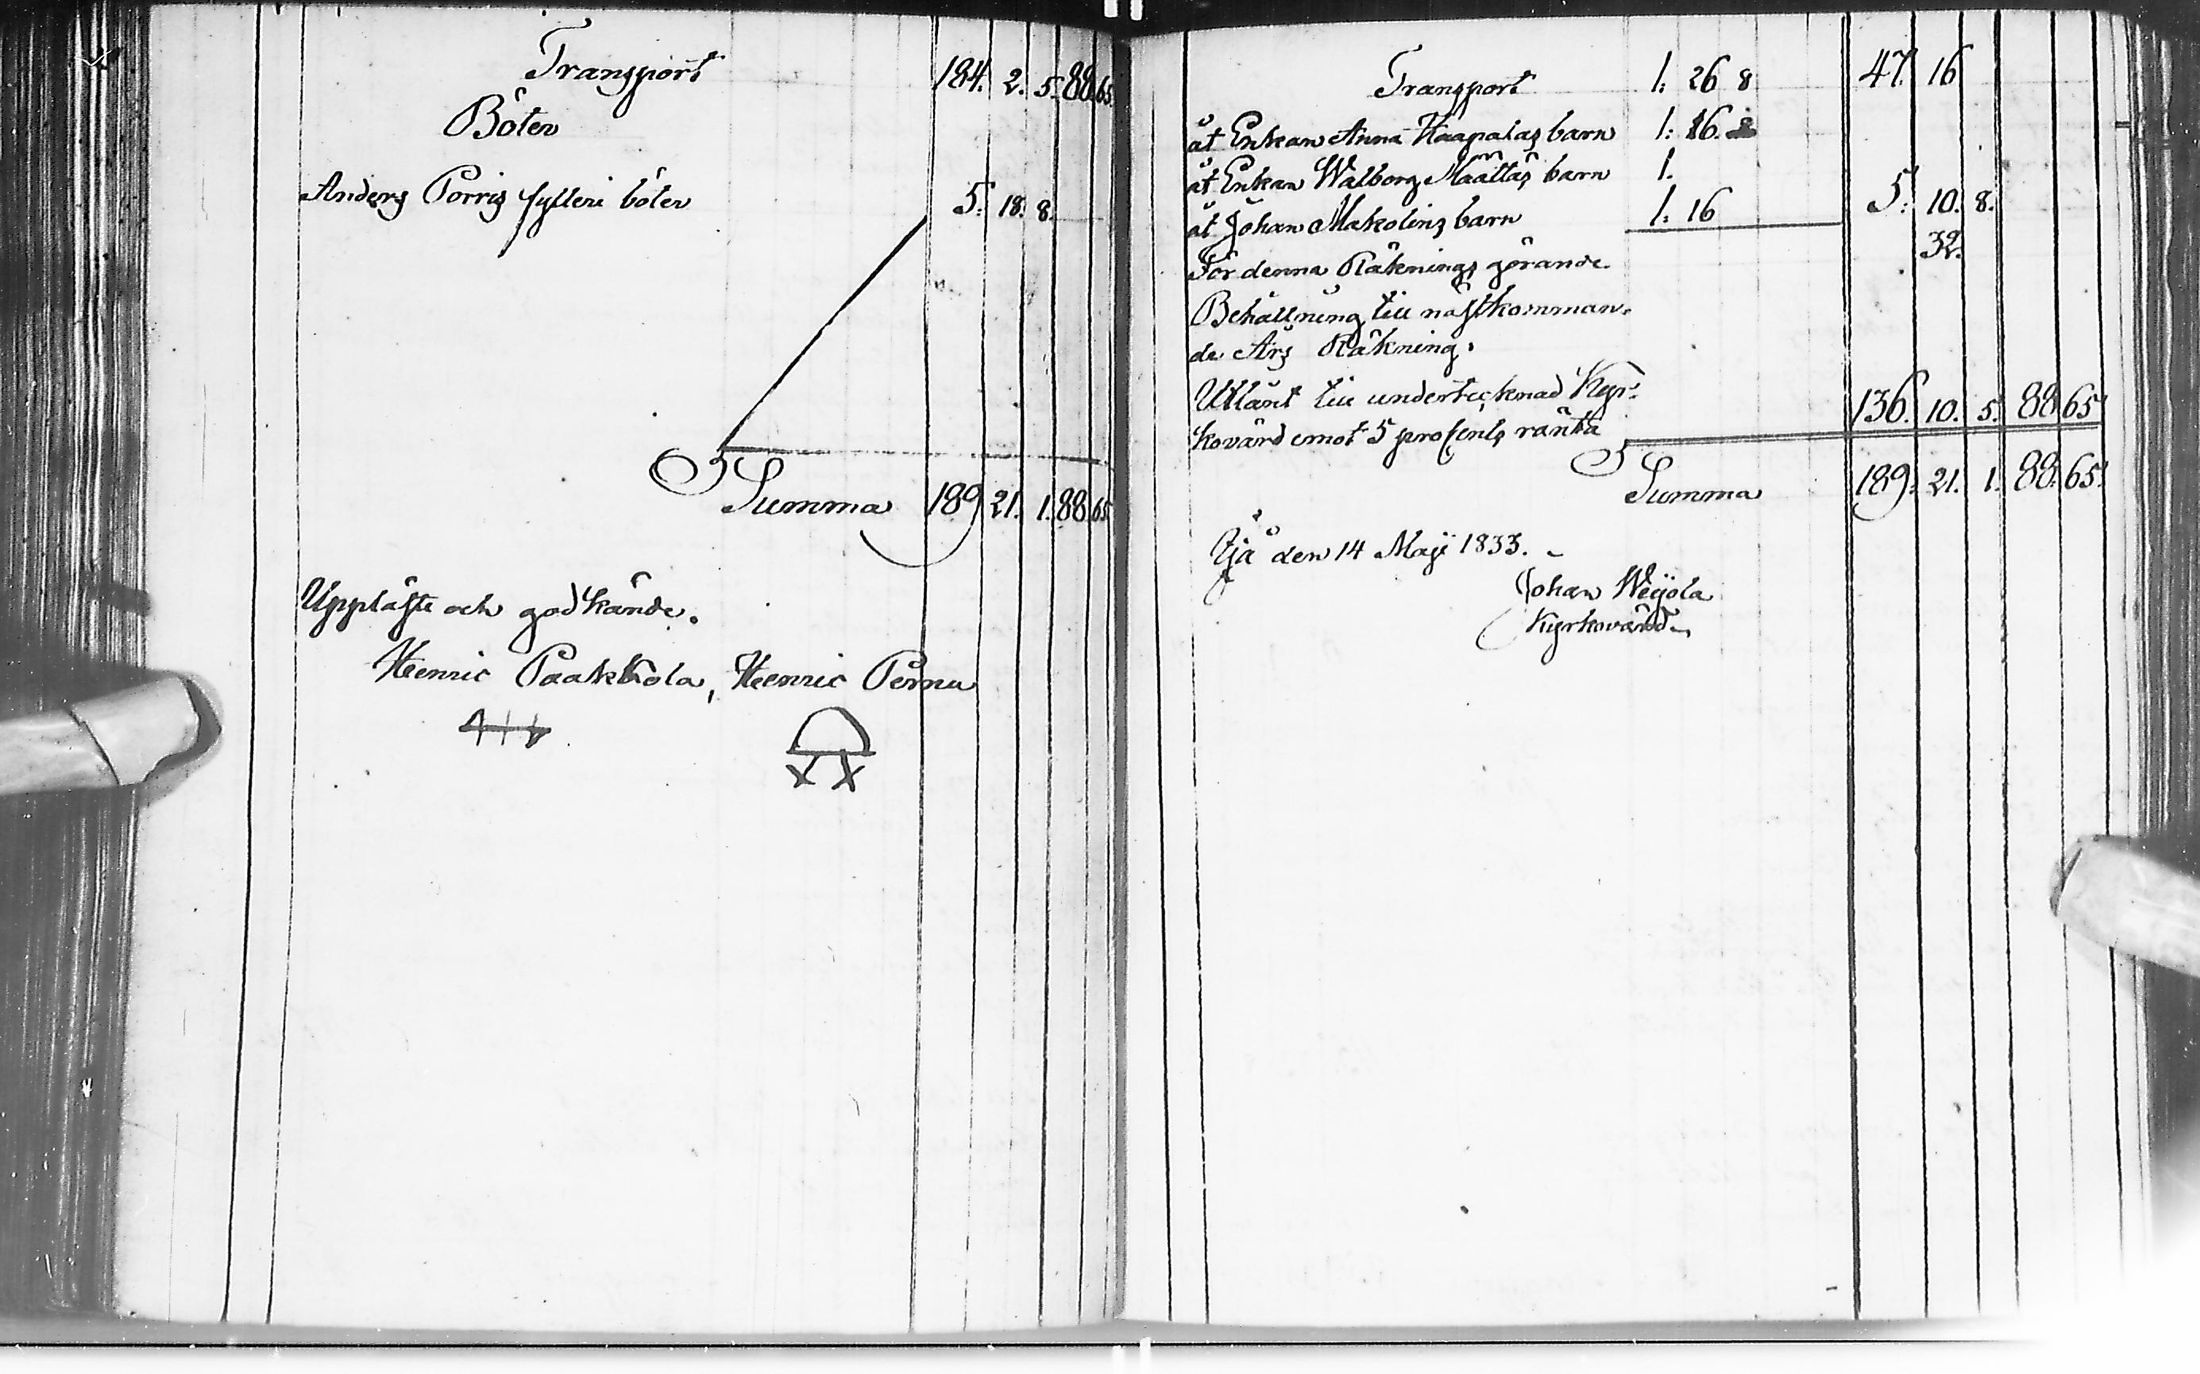 Transport 184. 2. 5. 88 65
Böter
Anders Porris fylleri böter 5. 18. 8.
Summa 189 21. 1. 88 65
Uppläste och godkände.
Henric Paakkola, Henric Perna
Transport 1: 26 8 47. 16
åt Enkan Anna Haapalas barn 1: 16.
åt Enkan Walborg Määttäs barn 1.
åt Johan Makolins barn 1: 16 5: 10. 8.
För denna Räknings görande 32.
Behållning till nästkomman-
de Års Räkning.
Utlänt till undertecknad Kyr-
kovärd emot 5 procents ränta 136. 10. 5. 88 65
Summa 189. 21. 1. 88. 65.
Ijå den 14 Maji 1833.
Johan Weijola
Kyrkovärd